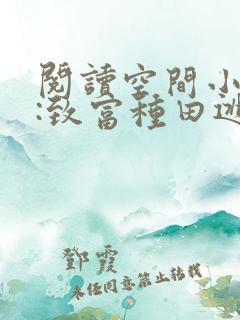 閱讀空間小
:致富種田逃
鄧霞
未經同意禁止转载